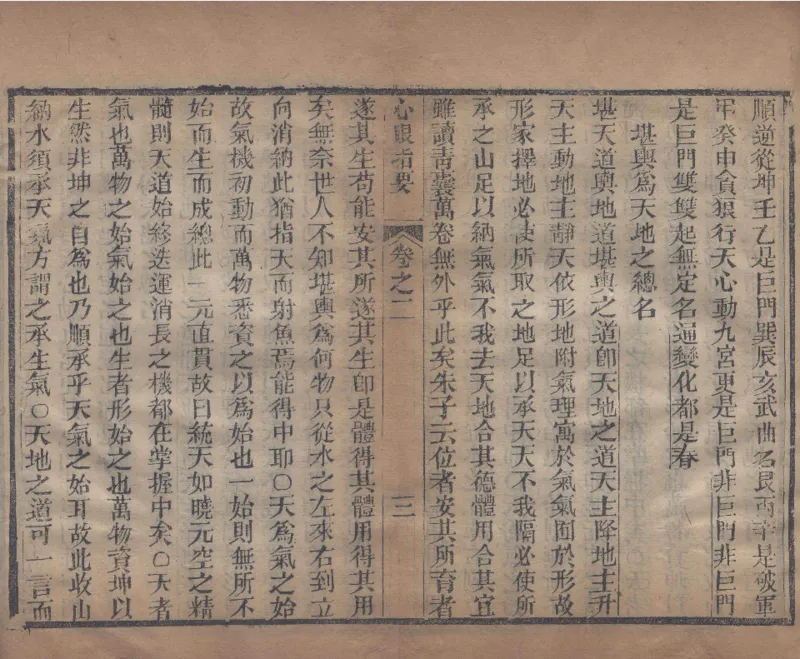 順逆從坤壬乙是巨門巽辰亥武曲名艮丙辛是破軍
甲癸申貪狼行天心動九宮更是巨門非巨門非巨門
是巨門雙雙起無定名遍變化都是春
堪輿爲天地之總名
堪天道輿地道堪輿之道卽天地之道天主降地主升
天主動地主靜天依形地附氣理寓於氣氣囿於形故
形家擇地必使所取之地足以承天天不我隔必使所
承之山足以納氣氣不我去天地合其德體用合其宜
雖讀書囊萬卷無外乎此矣朱子云位者安其所育者
心眼指要
卷之二
三
遂其生苟能安其所遂其生卽是體得其體用得其用
矣無奈世人不知堪輿爲何物只從水之左來右到立
向消納此猶指天而射魚焉能得中耶〇天爲氣之始
故氣機初動而萬物悉資之以爲始也一始則無所不
始而生而成總此一元直貫故曰統天如曉元空之精
髓則天道始終迭運消長之機都在掌握中矣〇天者
氣也萬物之始氣始之也生者形始之也萬物資坤以
生然非坤之自爲也乃順承乎天氣之始耳故此收山
納水須承天氣方謂之承生氣〇天地之道可一言而